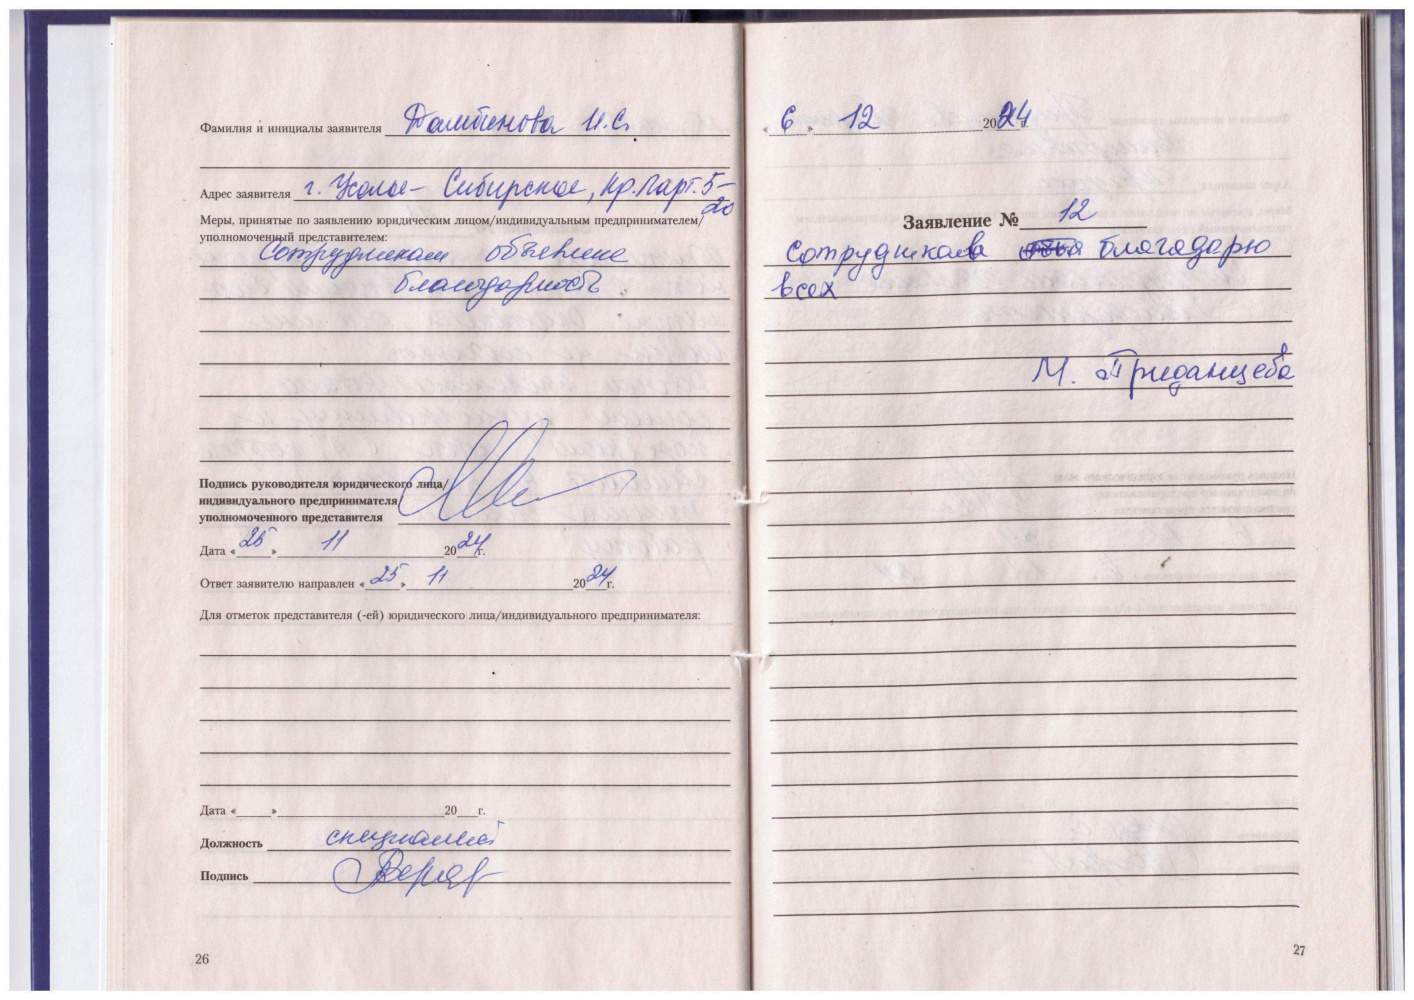 Фамилия и инициалы заявителя Дамбинова И.С.
Адрес заявителя г. Усолье-Сибирское, Кр. Парт. 5-
20
Меры, принятые по заявлению юридическим лицом/индивидуальным предпринимателем/
уполномоченный представителем:
Сотрудникам объявлена
благодарность
Подпись руководителя юридического лица/
индивидуального предпринимателя
уполномоченного представителя
Дата «25» 11 2024г.
Ответ заявителю направлен «25» 11 2024г.
Для отметок представителя (-ей) юридического лица/индивидуального предпринимателя:
Дата « » 20 г.
Должность специалист
Подпись
26
«6» 12 2024г.
Заявление № 12
Сотрудников благодарю
всех
М. Приданцева
27